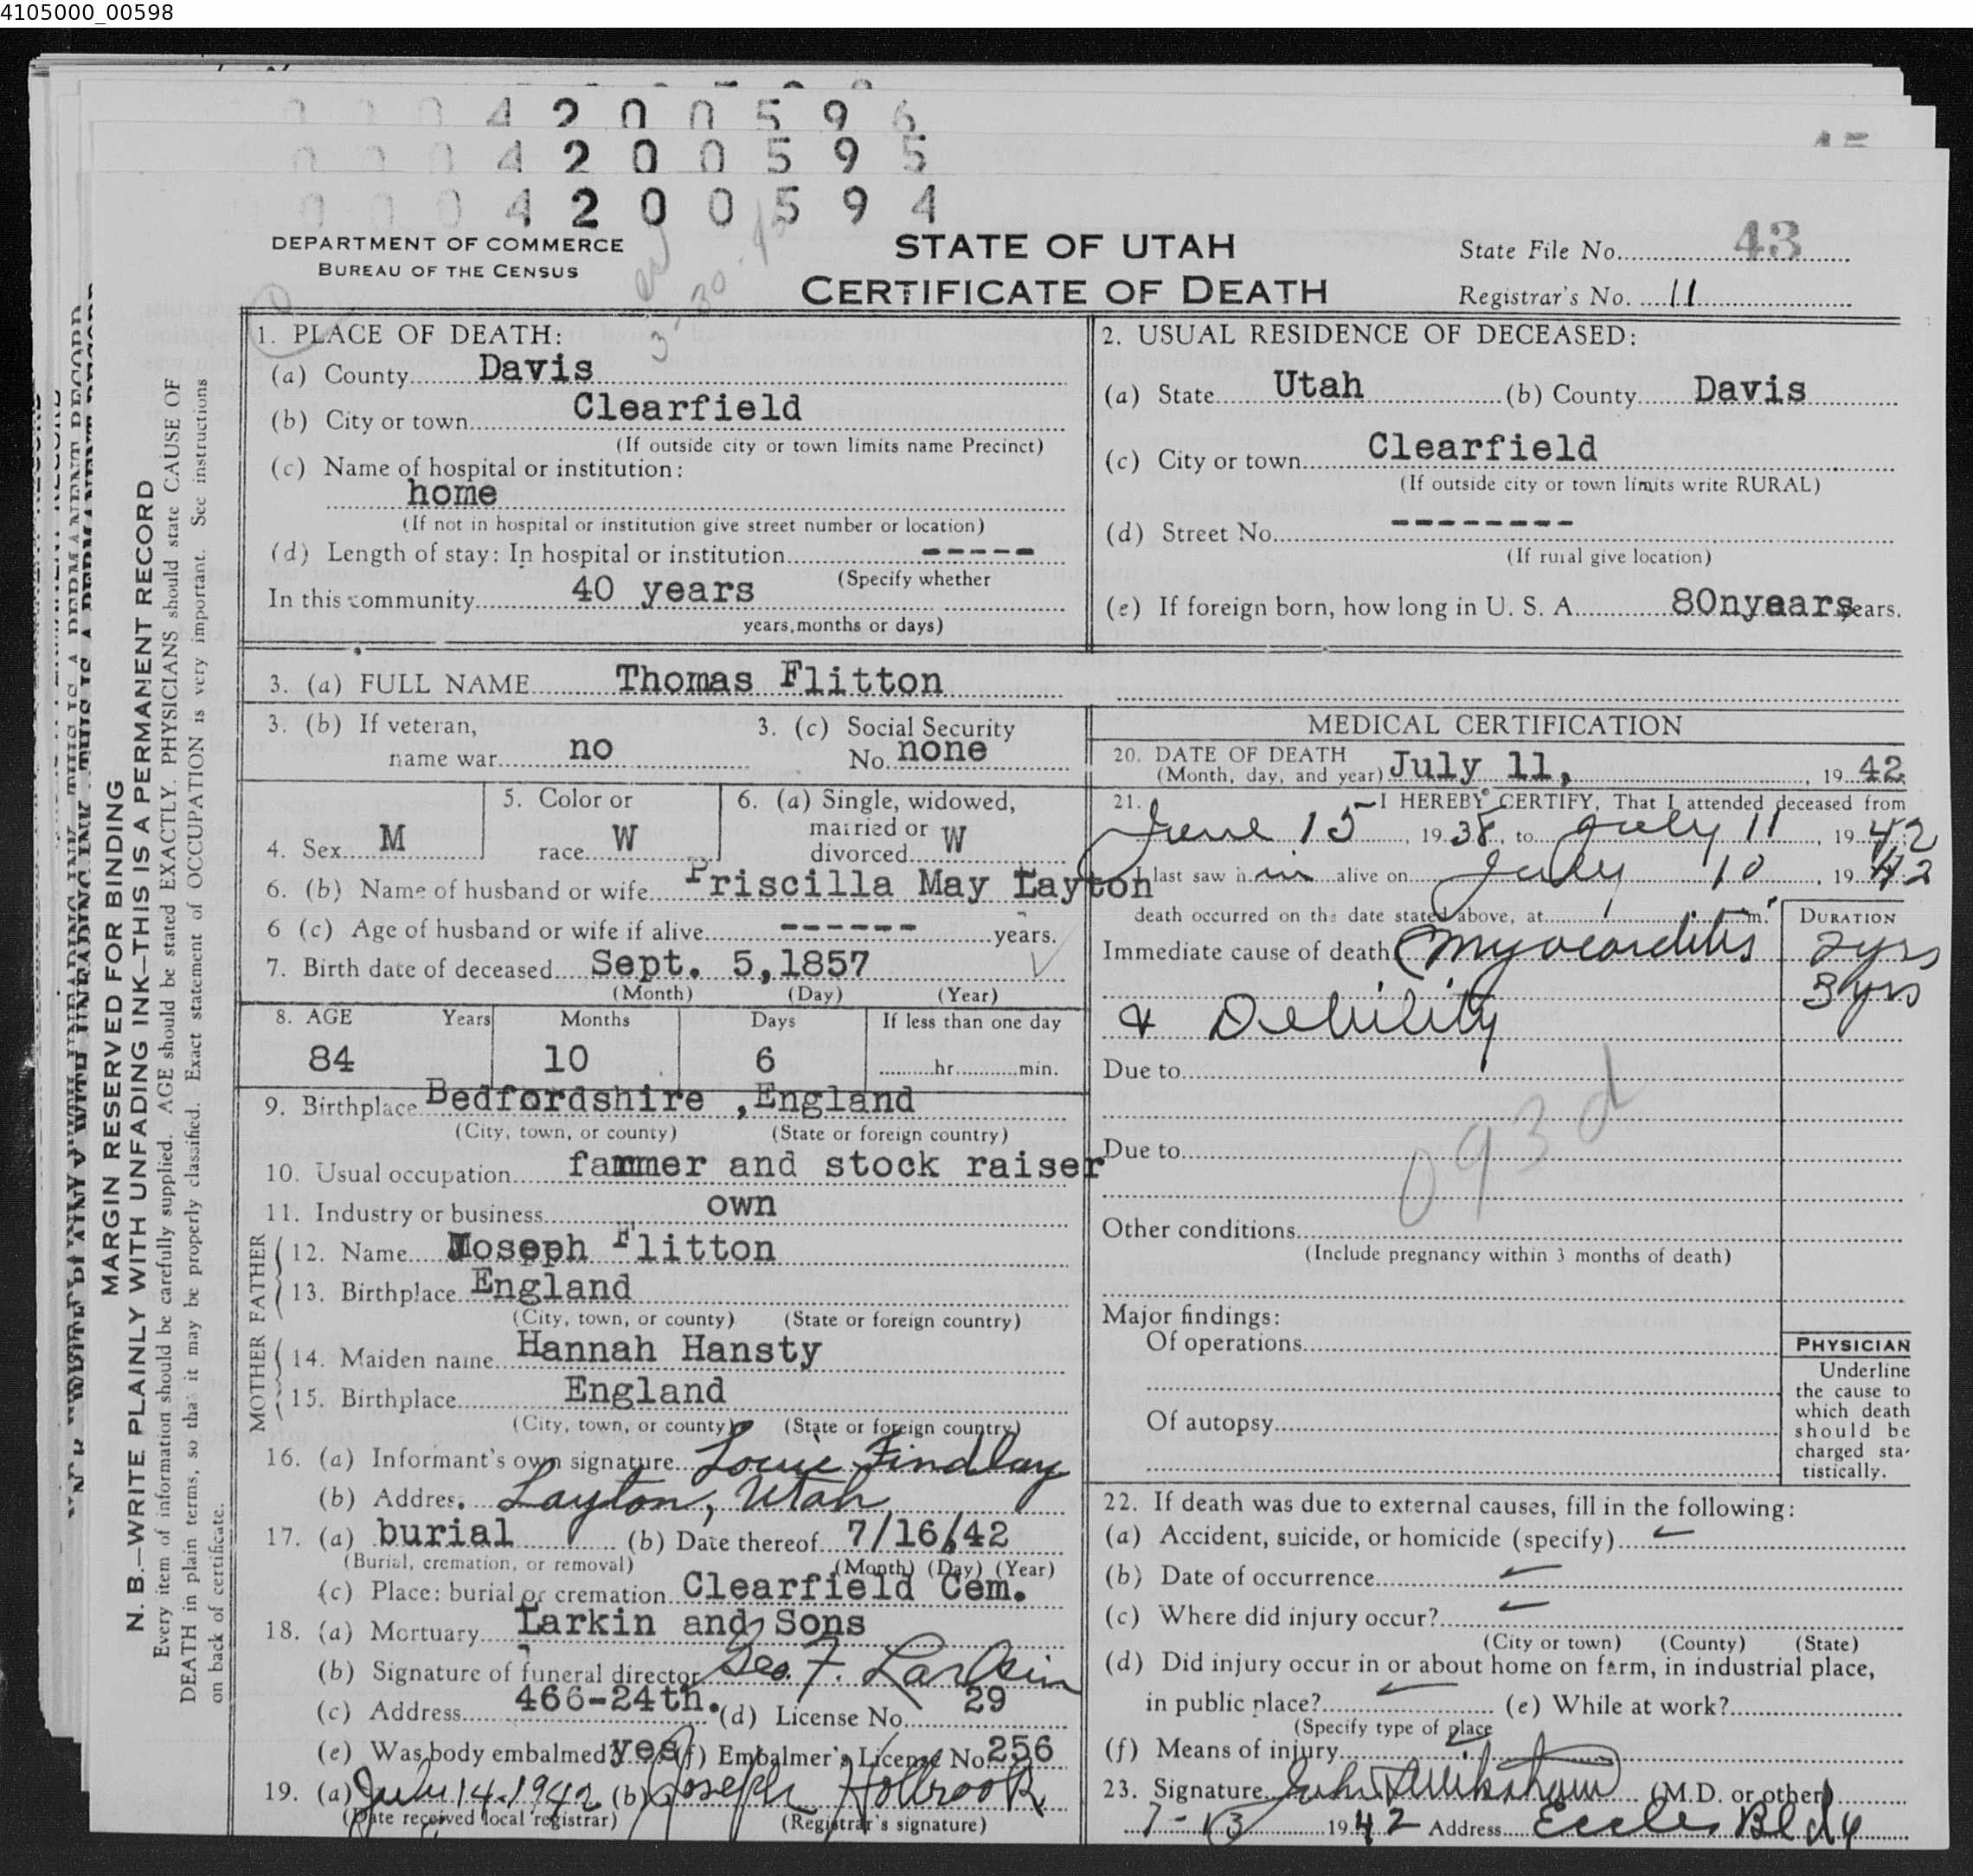 4105000_00598
4 2 0 0 5 9 6
0 0 0 4 2 0 0 5 9 5
0 0 0 4 2 0 0 5 9 4
DEPARTMENT OF COMMERCE
BUREAU OF THE CENSUS
STATE OF UTAH
CERTIFICATE OF DEATH
State File No. 43
Registrar's No. 11
MARGIN RESERVED FOR BINDING
N. B.—WRITE PLAINLY WITH UNFADING INK—THIS IS A PERMANENT RECORD
Every item of information should be carefully supplied. AGE should be stated EXACTLY. PHYSICIANS should state CAUSE OF
DEATH in plain terms, so that it may be properly classified. Exact statement of OCCUPATION is very important. See instructions
on back of certificate.
1. PLACE OF DEATH:
(a) County Davis
(b) City or town Clearfield
(If outside city or town limits name Precinct)
(c) Name of hospital or institution:
home
(If not in hospital or institution give street number or location)
(d) Length of stay: In hospital or institution -----
(Specify whether
In this community 40 years
years, months or days)
2. USUAL RESIDENCE OF DECEASED:
(a) State Utah (b) County Davis
(c) City or town Clearfield
(If outside city or town limits write RURAL)
(d) Street No. ---------
(If rural give location)
(e) If foreign born, how long in U. S. A. 80nyears years.
3. (a) FULL NAME Thomas Flitton
3. (b) If veteran,
name war no
3. (c) Social Security
No. none
4. Sex M
5. Color or
race W
6. (a) Single, widowed,
married or
divorced W
6. (b) Name of husband or wife Priscilla May Layton
6 (c) Age of husband or wife if alive ------ years.
7. Birth date of deceased Sept. 5,1857
(Month) (Day) (Year)
8. AGE Years Months Days If less than one day
84 10 6 hr. min.
9. Birthplace Bedfordshire ,England
(City, town, or county) (State or foreign country)
10. Usual occupation farmer and stock raiser
11. Industry or business own
FATHER
12. Name Joseph Flitton
13. Birthplace England
(City, town, or county) (State or foreign country)
MOTHER
14. Maiden name Hannah Hansty
15. Birthplace England
(City, town, or county) (State or foreign country)
16. (a) Informant's own signature Louie Findlay
(b) Address Layton, Utah
17. (a) burial (b) Date thereof 7/16/42
(Burial, cremation, or removal) (Month) (Day) (Year)
(c) Place: burial or cremation Clearfield Cem.
18. (a) Mortuary Larkin and Sons
(b) Signature of funeral director Geo. F. Larkin
(c) Address 466-24th. (d) License No. 29
(e) Was body embalmed? yes (f) Embalmer's License No. 256
19. (a) July 14-1942 (b) Joseph Holbrook
(Date received local registrar) (Registrar's signature)
MEDICAL CERTIFICATION
20. DATE OF DEATH
(Month, day, and year) July 11, 19 42
21. I HEREBY CERTIFY, That I attended deceased from
June 15, 19 38, to July 11, 19 42
I last saw him alive on July 10, 19 42
death occurred on the date stated above, at m.
DURATION
Immediate cause of death Myocarditis 2 yrs
3 yrs
& Debility
Due to
093d
Due to
Other conditions
(Include pregnancy within 3 months of death)
Major findings:
Of operations
Of autopsy
PHYSICIAN
Underline
the cause to
which death
should be
charged sta-
tistically.
22. If death was due to external causes, fill in the following:
(a) Accident, suicide, or homicide (specify)
(b) Date of occurrence
(c) Where did injury occur?
(City or town) (County) (State)
(d) Did injury occur in or about home on farm, in industrial place,
in public place? (e) While at work?
(Specify type of place
(f) Means of injury
23. Signature (M.D. or other)
7-13 1942 Address Eccles Bldg